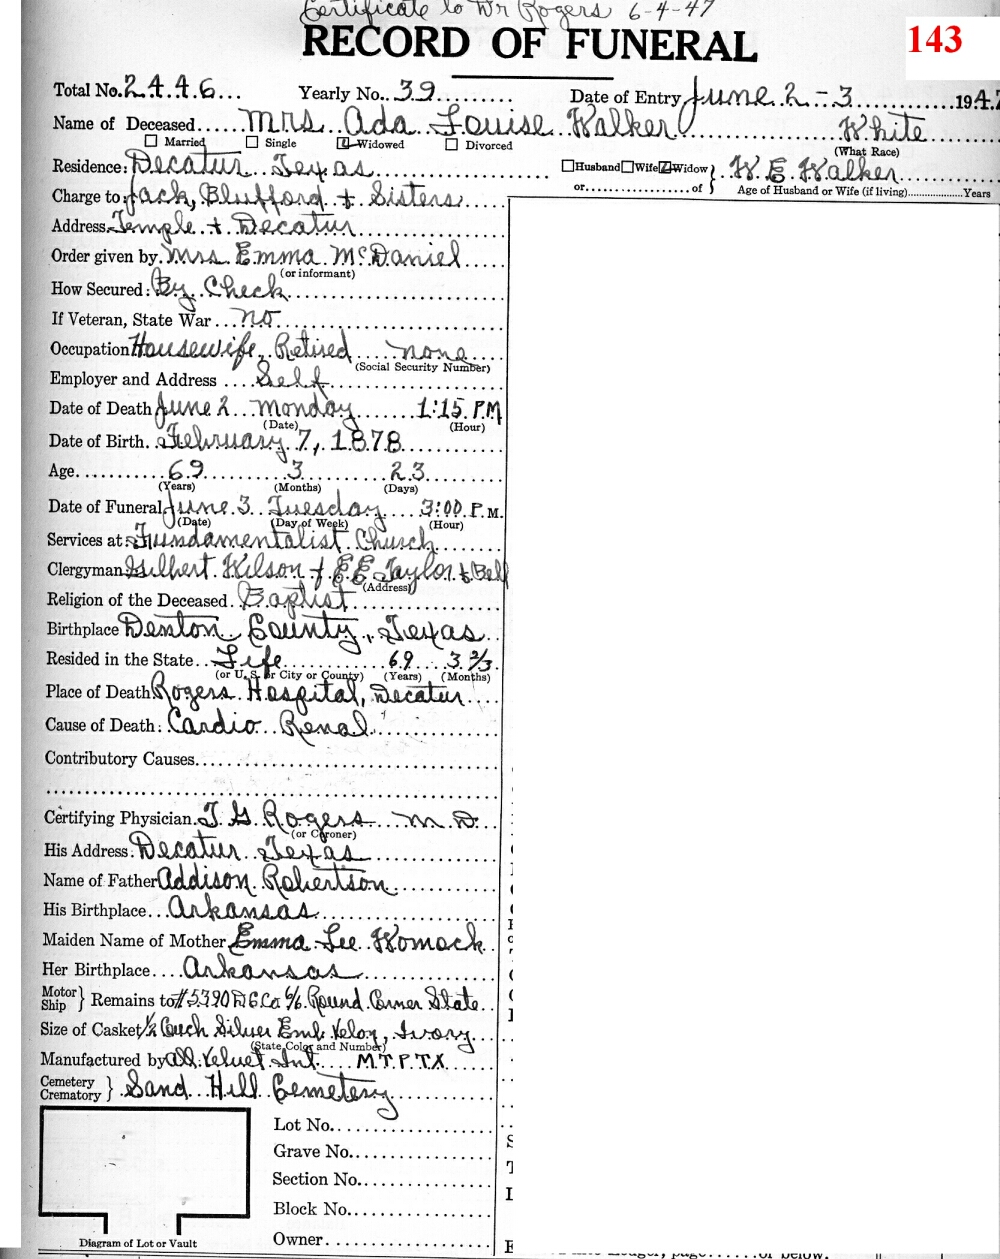 Certificate to Dr Rogers 6-4-47
RECORD OF FUNERAL
143
Total No. 2446 Yearly No. 39 Date of Entry June 2-3 1947
Name of Deceased Mrs. Ada Louise Walker White
☐ Married ☐ Single ☑ Widowed ☐ Divorced (What Race)
Residence: Decatur Texas ☐ Husband ☐ Wife ☑ Widow } W. E. Walker
or of } Age of Husband or Wife (if living) Years
Charge to: Jack, Blufford & Sisters
Address Temple & Decatur
Order given by Mrs. Emma McDaniel
(or informant)
How Secured: By Check
If Veteran, State War no
Occupation Housewife, Retired none
(Social Security Number)
Employer and Address Self
Date of Death June 2 Monday 1:15 P.M
(Date) (Hour)
Date of Birth February 7, 1878
Age 69 3 23
(Years) (Months) (Days)
Date of Funeral June 3 Tuesday 3:00 P.M.
(Date) (Day of Week) (Hour)
Services at Fundamentalist Church
Clergyman Gilbert Wilson & E E Taylor & Bell
(Address)
Religion of the Deceased Baptist
Birthplace Denton County, Texas
Resided in the State Life 69 3 2/3
(or U. S. or City or County) (Years) (Months)
Place of Death Rogers Hospital, Decatur
Cause of Death: Cardio Renal
Contributory Causes
Certifying Physician T. G. Rogers M. D.
(or Coroner)
His Address: Decatur Texas
Name of Father Addison Robertson
His Birthplace Arkansas
Maiden Name of Mother Emma Lee Womack
Her Birthplace Arkansas
Motor Ship } Remains to #5390 D G Co 6/6 Round Corner State
Size of Casket 1/2 Couch Silver Emb. Velour, Ivory
(State Color and Number)
Manufactured by All Velvet Int. M.T.P. TX
Cemetery Crematory } Sand Hill Cemetery
Lot No.
Grave No.
Section No.
Block No.
Owner
Diagram of Lot or Vault